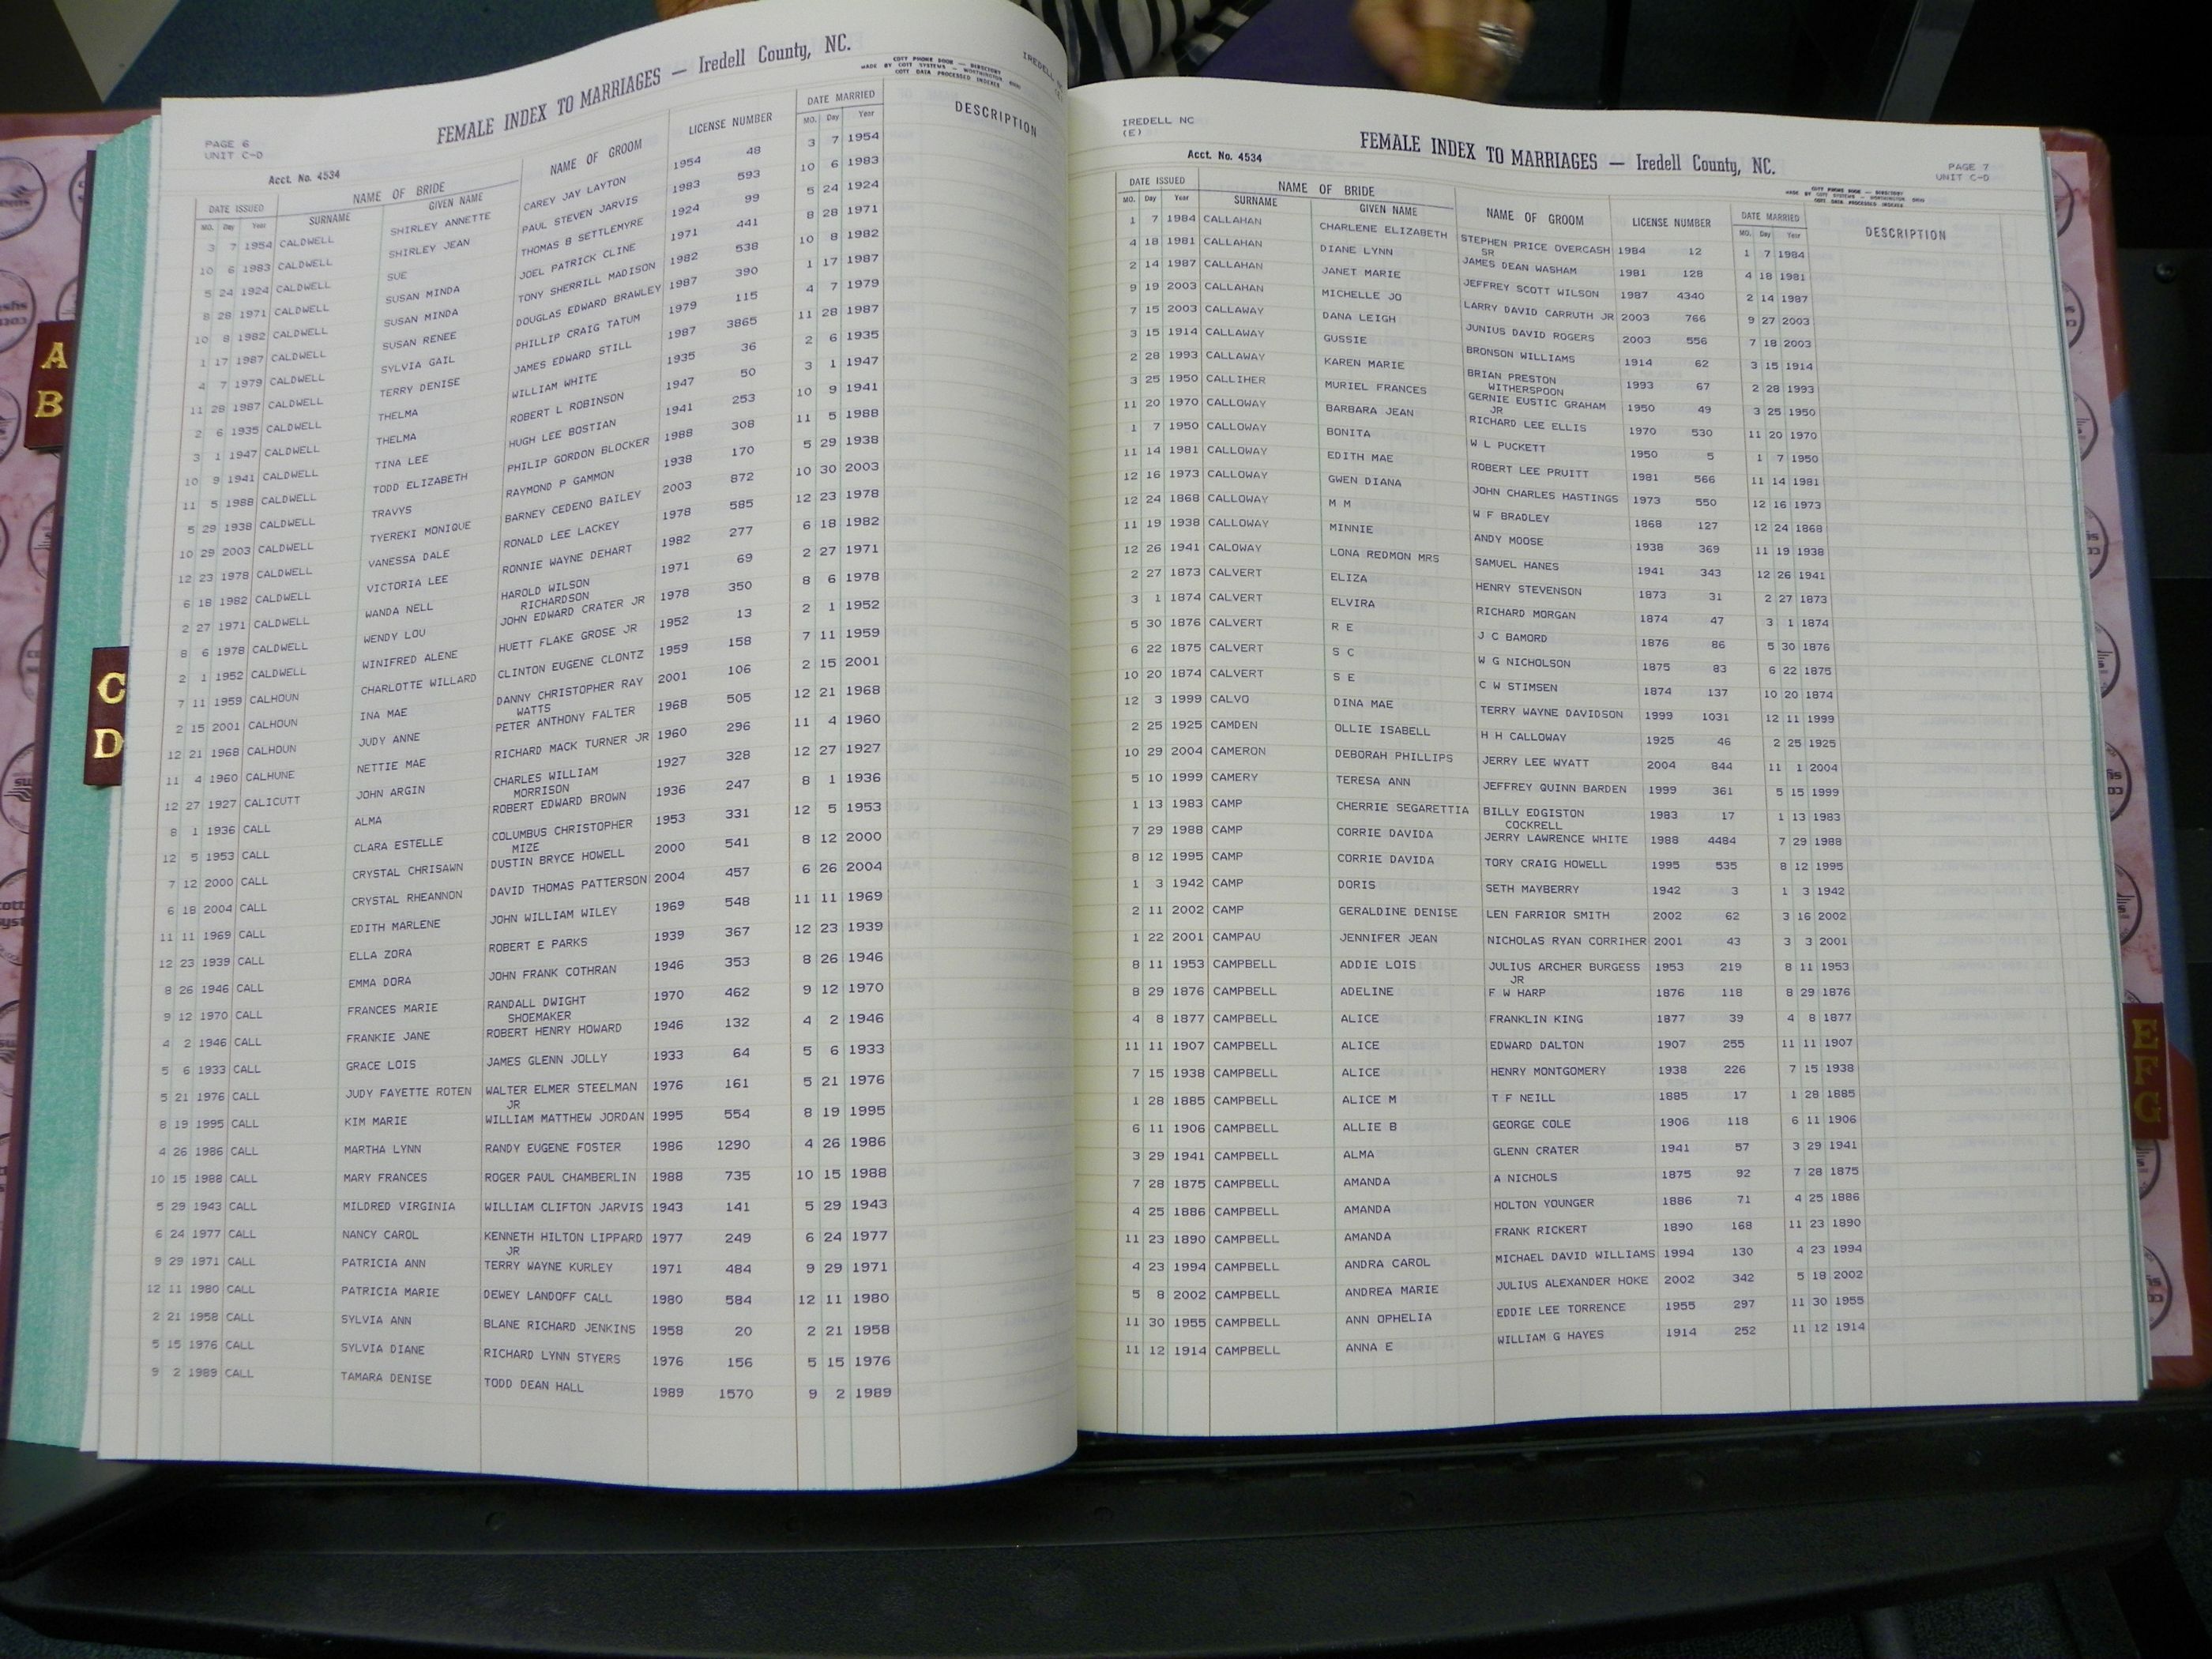 IREDELL NC
PAGE 6
UNIT C-D
FEMALE INDEX TO MARRIAGES — Iredell County, NC.
COTT PHONE BOOK — DIRECTORY
MADE BY COTT SYSTEMS — WORTHINGTON OHIO
COTT DATA PROCESSED INDEXES
Acct. No. 4534
DATE ISSUED NAME OF BRIDE NAME OF GROOM LICENSE NUMBER DATE MARRIED DESCRIPTION
MO. Day Year SURNAME GIVEN NAME MO. Day Year
3 7 1954 CALDWELL SHIRLEY ANNETTE CAREY JAY LAYTON 1954 48 3 7 1954
10 6 1983 CALDWELL SHIRLEY JEAN PAUL STEVEN JARVIS 1983 593 10 6 1983
5 24 1924 CALDWELL SUE THOMAS B SETTLEMYRE 1924 99 5 24 1924
8 28 1971 CALDWELL SUSAN MINDA JOEL PATRICK CLINE 1971 441 8 28 1971
10 8 1982 CALDWELL SUSAN MINDA TONY SHERRILL MADISON 1982 538 10 8 1982
1 17 1987 CALDWELL SUSAN RENEE DOUGLAS EDWARD BRAWLEY 1987 390 1 17 1987
4 7 1979 CALDWELL SYLVIA GAIL PHILLIP CRAIG TATUM 1979 115 4 7 1979
11 28 1987 CALDWELL TERRY DENISE JAMES EDWARD STILL 1987 3865 11 28 1987
2 6 1935 CALDWELL THELMA WILLIAM WHITE 1935 36 2 6 1935
3 1 1947 CALDWELL THELMA ROBERT L ROBINSON 1947 50 3 1 1947
10 9 1941 CALDWELL TINA LEE HUGH LEE BOSTIAN 1941 253 10 9 1941
11 5 1988 CALDWELL TODD ELIZABETH PHILIP GORDON BLOCKER 1988 308 11 5 1988
5 29 1938 CALDWELL TRAVYS RAYMOND P GAMMON 1938 170 5 29 1938
10 29 2003 CALDWELL TYEREKI MONIQUE BARNEY CEDENO BAILEY 2003 872 10 30 2003
12 23 1978 CALDWELL VANESSA DALE RONALD LEE LACKEY 1978 585 12 23 1978
6 18 1982 CALDWELL VICTORIA LEE RONNIE WAYNE DEHART 1982 277 6 18 1982
2 27 1971 CALDWELL WANDA NELL HAROLD WILSON 1971 69 2 27 1971
RICHARDSON
8 6 1978 CALDWELL WENDY LOU JOHN EDWARD CRATER JR 1978 350 8 6 1978
2 1 1952 CALDWELL WINIFRED ALENE HUETT FLAKE GROSE JR 1952 13 2 1 1952
7 11 1959 CALHOUN CHARLOTTE WILLARD CLINTON EUGENE CLONTZ 1959 158 7 11 1959
2 15 2001 CALHOUN INA MAE DANNY CHRISTOPHER RAY 2001 106 2 15 2001
WATTS
12 21 1968 CALHOUN JUDY ANNE PETER ANTHONY FALTER 1968 505 12 21 1968
11 4 1960 CALHUNE NETTIE MAE RICHARD MACK TURNER JR 1960 296 11 4 1960
12 27 1927 CALICUTT JOHN ARGIN CHARLES WILLIAM 1927 328 12 27 1927
MORRISON
8 1 1936 CALL ALMA ROBERT EDWARD BROWN 1936 247 8 1 1936
12 5 1953 CALL CLARA ESTELLE COLUMBUS CHRISTOPHER 1953 331 12 5 1953
MIZE
7 12 2000 CALL CRYSTAL CHRISAWN DUSTIN BRYCE HOWELL 2000 541 8 12 2000
6 18 2004 CALL CRYSTAL RHEANNON DAVID THOMAS PATTERSON 2004 457 6 26 2004
11 11 1969 CALL EDITH MARLENE JOHN WILLIAM WILEY 1969 548 11 11 1969
12 23 1939 CALL ELLA ZORA ROBERT E PARKS 1939 367 12 23 1939
8 26 1946 CALL EMMA DORA JOHN FRANK COTHRAN 1946 353 8 26 1946
9 12 1970 CALL FRANCES MARIE RANDALL DWIGHT 1970 462 9 12 1970
SHOEMAKER
4 2 1946 CALL FRANKIE JANE ROBERT HENRY HOWARD 1946 132 4 2 1946
5 6 1933 CALL GRACE LOIS JAMES GLENN JOLLY 1933 64 5 6 1933
5 21 1976 CALL JUDY FAYETTE ROTEN WALTER ELMER STEELMAN 1976 161 5 21 1976
JR
8 19 1995 CALL KIM MARIE WILLIAM MATTHEW JORDAN 1995 554 8 19 1995
4 26 1986 CALL MARTHA LYNN RANDY EUGENE FOSTER 1986 1290 4 26 1986
10 15 1988 CALL MARY FRANCES ROGER PAUL CHAMBERLIN 1988 735 10 15 1988
5 29 1943 CALL MILDRED VIRGINIA WILLIAM CLIFTON JARVIS 1943 141 5 29 1943
6 24 1977 CALL NANCY CAROL KENNETH HILTON LIPPARD 1977 249 6 24 1977
JR
9 29 1971 CALL PATRICIA ANN TERRY WAYNE KURLEY 1971 484 9 29 1971
12 11 1980 CALL PATRICIA MARIE DEWEY LANDOFF CALL 1980 584 12 11 1980
2 21 1958 CALL SYLVIA ANN BLANE RICHARD JENKINS 1958 20 2 21 1958
5 15 1976 CALL SYLVIA DIANE RICHARD LYNN STYERS 1976 156 5 15 1976
9 2 1989 CALL TAMARA DENISE TODD DEAN HALL 1989 1570 9 2 1989
IREDELL NC
(E)
FEMALE INDEX TO MARRIAGES — Iredell County, NC.
PAGE 7
UNIT C-D
Acct. No. 4534
COTT PHONE BOOK — DIRECTORY
MADE BY COTT SYSTEMS — WORTHINGTON OHIO
COTT DATA PROCESSED INDEXES
DATE ISSUED NAME OF BRIDE NAME OF GROOM LICENSE NUMBER DATE MARRIED DESCRIPTION
MO. Day Year SURNAME GIVEN NAME MO. Day Year
1 7 1984 CALLAHAN CHARLENE ELIZABETH STEPHEN PRICE OVERCASH 1984 12 1 7 1984
SR
4 18 1981 CALLAHAN DIANE LYNN JAMES DEAN WASHAM 1981 128 4 18 1981
2 14 1987 CALLAHAN JANET MARIE JEFFREY SCOTT WILSON 1987 4340 2 14 1987
9 19 2003 CALLAHAN MICHELLE JO LARRY DAVID CARRUTH JR 2003 766 9 27 2003
7 15 2003 CALLAWAY DANA LEIGH JUNIUS DAVID ROGERS 2003 556 7 18 2003
3 15 1914 CALLAWAY GUSSIE BRONSON WILLIAMS 1914 62 3 15 1914
2 28 1993 CALLAWAY KAREN MARIE BRIAN PRESTON 1993 67 2 28 1993
WITHERSPOON
3 25 1950 CALLIHER MURIEL FRANCES GERNIE EUSTIC GRAHAM 1950 49 3 25 1950
JR
11 20 1970 CALLOWAY BARBARA JEAN RICHARD LEE ELLIS 1970 530 11 20 1970
1 7 1950 CALLOWAY BONITA W L PUCKETT 1950 5 1 7 1950
11 14 1981 CALLOWAY EDITH MAE ROBERT LEE PRUITT 1981 566 11 14 1981
12 16 1973 CALLOWAY GWEN DIANA JOHN CHARLES HASTINGS 1973 550 12 16 1973
12 24 1868 CALLOWAY M M W F BRADLEY 1868 127 12 24 1868
11 19 1938 CALLOWAY MINNIE ANDY MOOSE 1938 369 11 19 1938
12 26 1941 CALOWAY LONA REDMON MRS SAMUEL HANES 1941 343 12 26 1941
2 27 1873 CALVERT ELIZA HENRY STEVENSON 1873 31 2 27 1873
3 1 1874 CALVERT ELVIRA RICHARD MORGAN 1874 47 3 1 1874
5 30 1876 CALVERT R E J C BAMORD 1876 86 5 30 1876
6 22 1875 CALVERT S C W G NICHOLSON 1875 83 6 22 1875
10 20 1874 CALVERT S E C W STIMSEN 1874 137 10 20 1874
12 3 1999 CALVO DINA MAE TERRY WAYNE DAVIDSON 1999 1031 12 11 1999
2 25 1925 CAMDEN OLLIE ISABELL H H CALLOWAY 1925 46 2 25 1925
10 29 2004 CAMERON DEBORAH PHILLIPS JERRY LEE WYATT 2004 844 11 1 2004
5 10 1999 CAMERY TERESA ANN JEFFREY QUINN BARDEN 1999 361 5 15 1999
1 13 1983 CAMP CHERRIE SEGARETTIA BILLY EDGISTON 1983 17 1 13 1983
COCKRELL
7 29 1988 CAMP CORRIE DAVIDA JERRY LAWRENCE WHITE 1988 4484 7 29 1988
8 12 1995 CAMP CORRIE DAVIDA TORY CRAIG HOWELL 1995 535 8 12 1995
1 3 1942 CAMP DORIS SETH MAYBERRY 1942 3 1 3 1942
2 11 2002 CAMP GERALDINE DENISE LEN FARRIOR SMITH 2002 62 3 16 2002
1 22 2001 CAMPAU JENNIFER JEAN NICHOLAS RYAN CORRIHER 2001 43 3 3 2001
8 11 1953 CAMPBELL ADDIE LOIS JULIUS ARCHER BURGESS 1953 219 8 11 1953
JR
8 29 1876 CAMPBELL ADELINE F W HARP 1876 118 8 29 1876
4 8 1877 CAMPBELL ALICE FRANKLIN KING 1877 39 4 8 1877
11 11 1907 CAMPBELL ALICE EDWARD DALTON 1907 255 11 11 1907
7 15 1938 CAMPBELL ALICE HENRY MONTGOMERY 1938 226 7 15 1938
1 28 1885 CAMPBELL ALICE M T F NEILL 1885 17 1 28 1885
6 11 1906 CAMPBELL ALLIE B GEORGE COLE 1906 118 6 11 1906
3 29 1941 CAMPBELL ALMA GLENN CRATER 1941 57 3 29 1941
7 28 1875 CAMPBELL AMANDA A NICHOLS 1875 92 7 28 1875
4 25 1886 CAMPBELL AMANDA HOLTON YOUNGER 1886 71 4 25 1886
11 23 1890 CAMPBELL AMANDA FRANK RICKERT 1890 168 11 23 1890
4 23 1994 CAMPBELL ANDRA CAROL MICHAEL DAVID WILLIAMS 1994 130 4 23 1994
5 8 2002 CAMPBELL ANDREA MARIE JULIUS ALEXANDER HOKE 2002 342 5 18 2002
11 30 1955 CAMPBELL ANN OPHELIA EDDIE LEE TORRENCE 1955 297 11 30 1955
11 12 1914 CAMPBELL ANNA E WILLIAM G HAYES 1914 252 11 12 1914
A
B
C
D
E
F
G